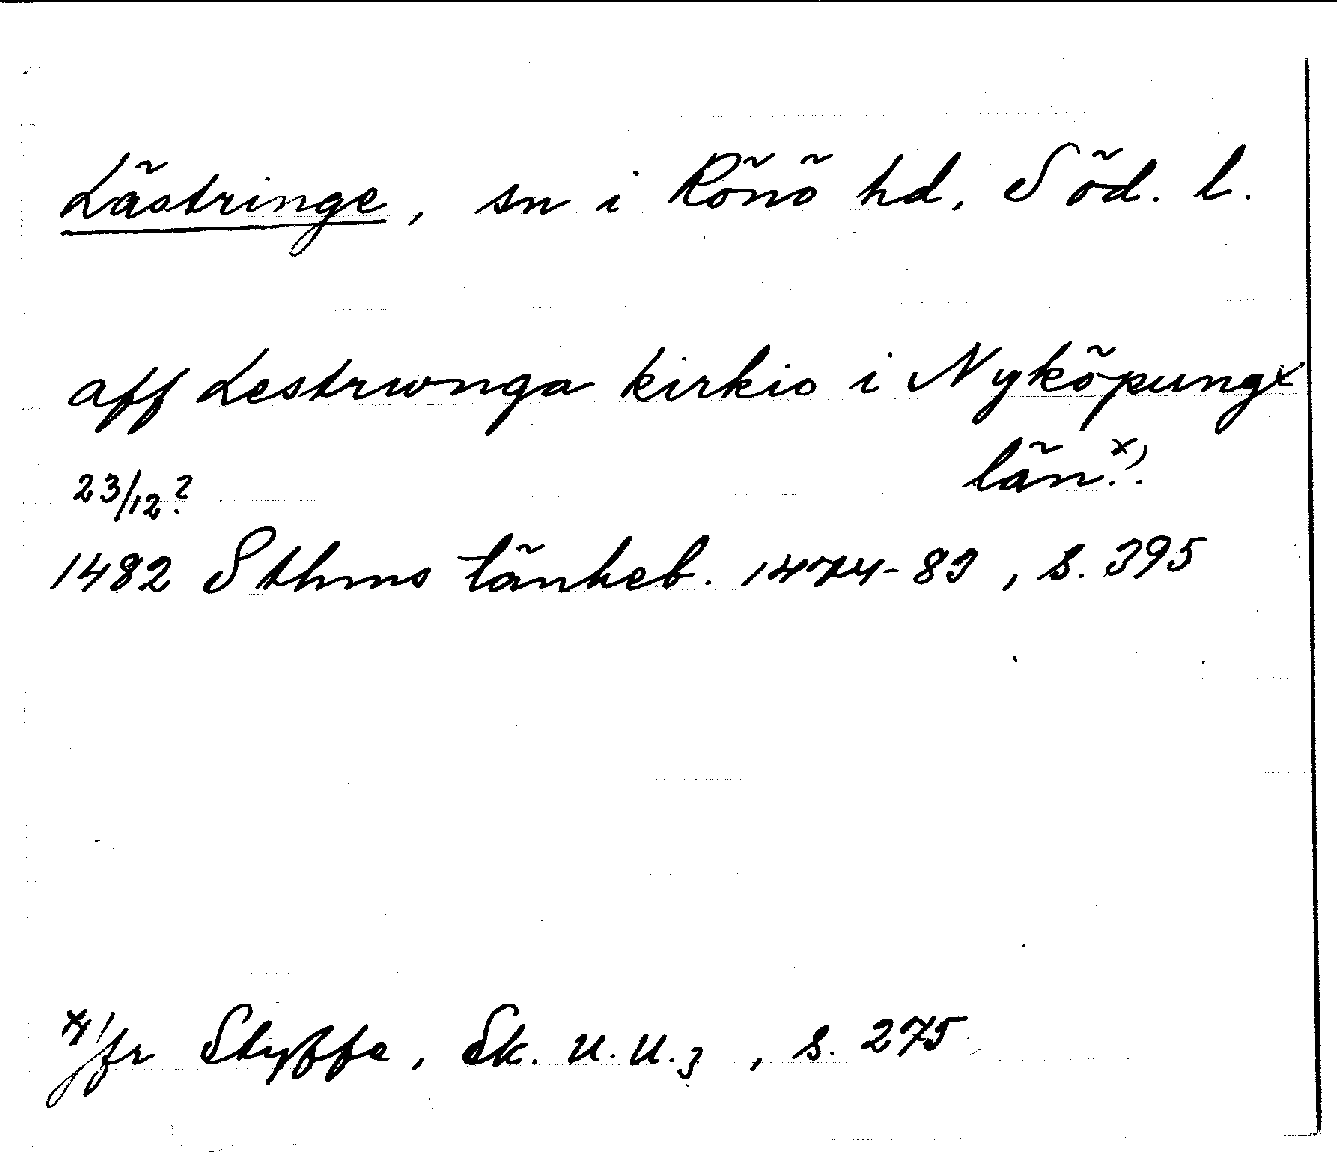 Lästringe, sn i Rönö hd, Söd. l.
aff Lestrwnga kirkio i Nyköpungx
län.x)
23/12?
1482 Sthms tänkeb. 1474-83, s. 395
x) Jfr Styffe, Sk. U.U.3, s. 275